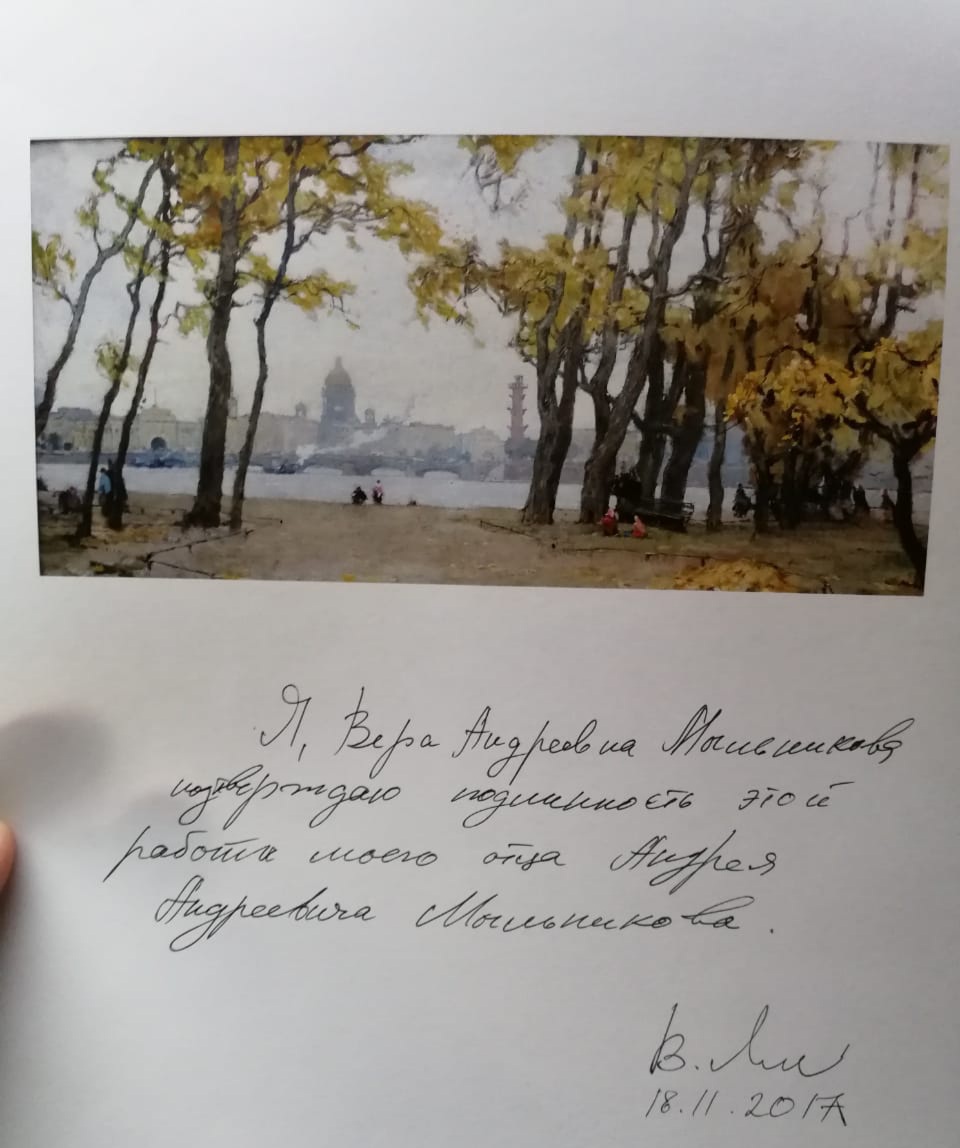 Я, Вера Андреевна Мыльникова
подтверждаю подлинность этой
работы моего отца Андрея
Андреевича Мыльникова.
18.11.2017